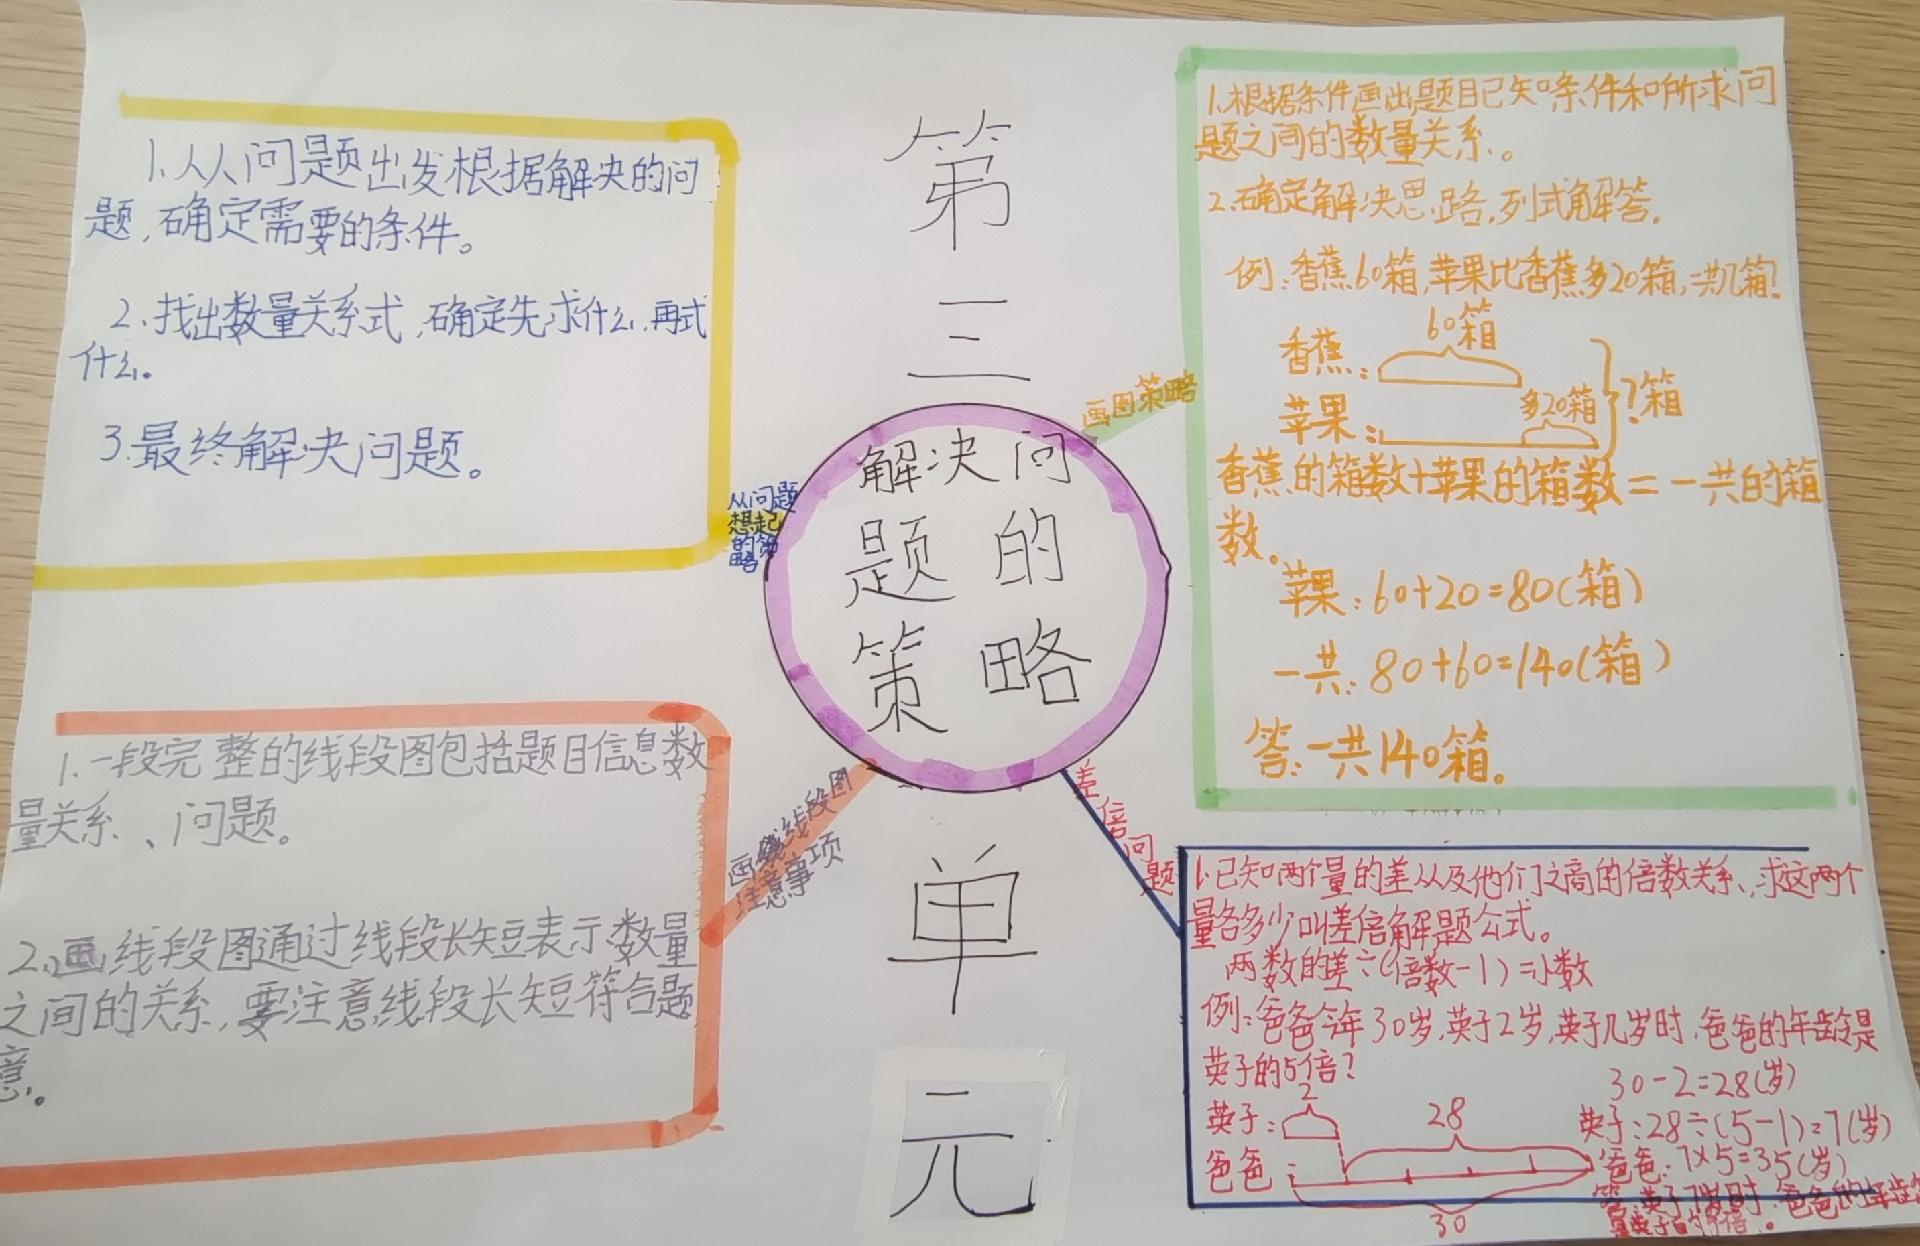 第三单元
解决问
题的
策略
从问题
想起
的策
略
1.从问题出发根据解决的问
题,确定需要的条件。
2.找出数量关系式,确定先求什么,再式
什么。
3.最终解决问题。
画图策略
1.根据条件画出题目已知条件和所求问
题之间的数量关系。
2.确定解决思路,列式解答.
例:香蕉60箱,苹果比香蕉多20箱,一共几箱?
60箱
香蕉:
多20箱
?箱
苹果:
香蕉的箱数+苹果的箱数=一共的箱
数。
苹果:60+20=80(箱)
一共:80+60=140(箱)
答:一共140箱。
画线段图
注意事项
1.一段完整的线段图包括题目信息数
量关系、问题。
2.画线段图通过线段长短表示数量
之间的关系,要注意线段长短符合题
意。
差倍问题
1.已知两个量的差以及他们之高的倍数关系,求这两个
量各多少叫差倍解题公式。
两数的差÷(倍数-1)=小数
例:爸爸今年30岁,英子2岁,英子几岁时,爸爸的年龄是
英子的5倍?
30-2=28(岁)
2
英子:
28
英子:28÷(5-1)=7(岁)
爸爸:
爸爸:7×5=35(岁)
30
答:英子7岁时,爸爸的年龄
是英子的5倍。